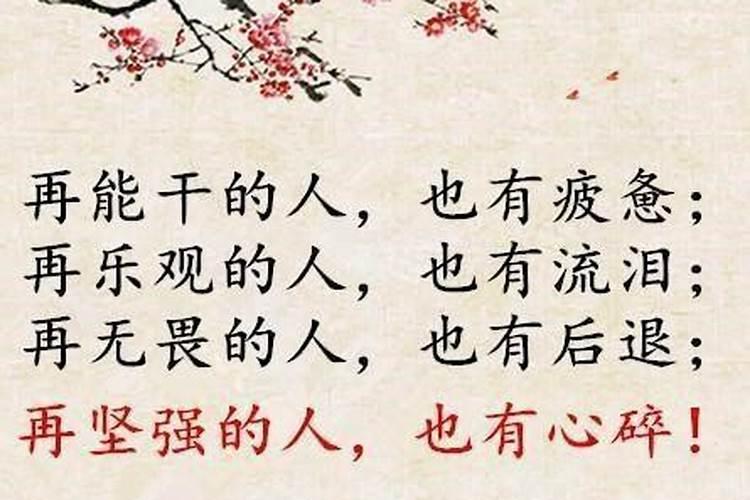 再能干的人，也有疲惫；
再乐观的人，也有流泪；
再无畏的人，也有后退；
再坚强的人，也有心碎！